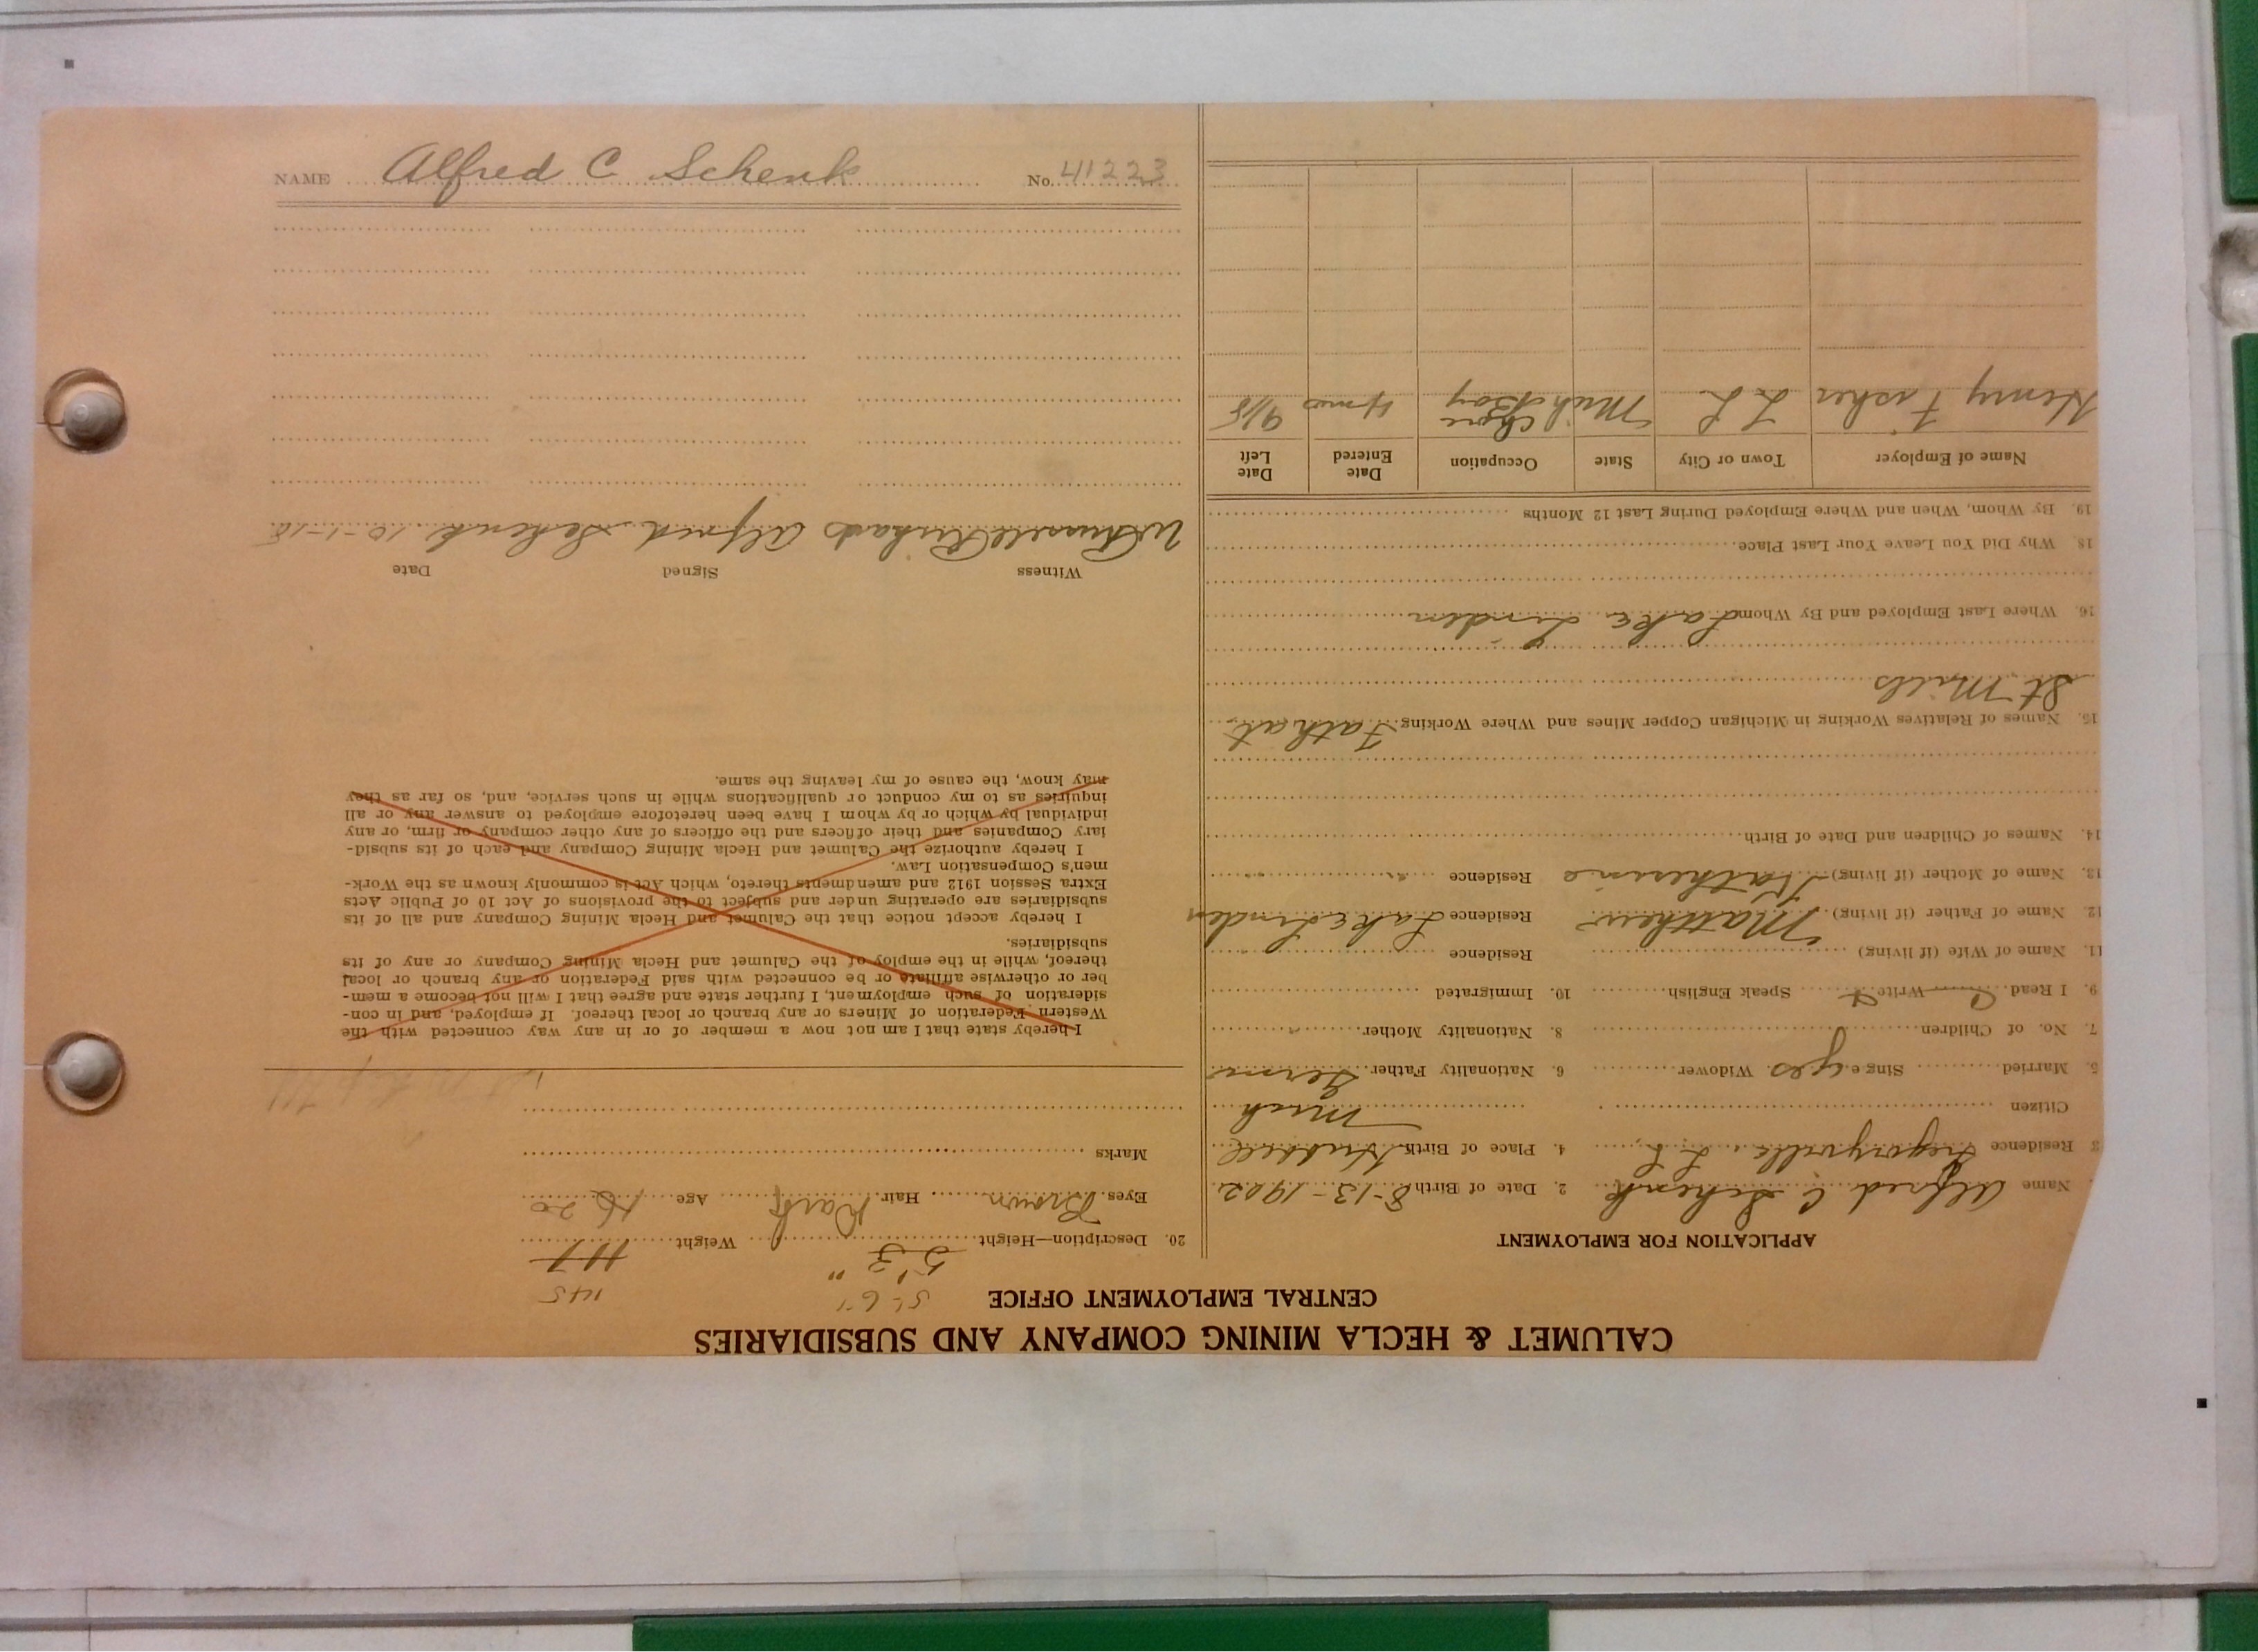 CALUMET & HECLA MINING COMPANY AND SUBSIDIARIES
CENTRAL EMPLOYMENT OFFICE
APPLICATION FOR EMPLOYMENT
Name Alfred C. Schenk 2. Date of Birth 8-13-1902
3 Residence Gregoryville L. L. 4. Place of Birth Hubbell
Citizen Mich
5. Married Single yes Widower 6. Nationality Father Germ
7. No. of Children 8. Nationality Mother "
9. I Read Write Speak English 10. Immigrated
11. Name of Wife (if living) Residence
12. Name of Father (if living) Matthew Residence Lake Linden
13. Name of Mother (if living) Katherine Residence " "
14. Names of Children and Date of Birth
15. Names of Relatives Working in Michigan Copper Mines and Where Working Father at
St Mills
16. Where Last Employed and By Whom Lake Linden
18. Why Did You Leave Your Last Place
19. By Whom, When and Where Employed During Last 12 Months
Name of Employer Town or City State Occupation Date Entered Date Left
Henry Fisher L L Mich Chore Boy 4 mos 9/18
5'-6" 145
20. Description—Height 5' 3" Weight 117
Eyes Brown Hair Dark Age 16 20
Marks
I hereby state that I am not now a member of or in any way connected with the
Western Federation of Miners or any branch or local thereof. If employed, and in con-
sideration of such employment, I further state and agree that I will not become a mem-
ber or otherwise affiliate or be connected with said Federation or any branch or local
thereof, while in the employ of the Calumet and Hecla Mining Company or any of its
subsidiaries.
I hereby accept notice that the Calumet and Hecla Mining Company and all of its
subsidiaries are operating under and subject to the provisions of Act 10 of Public Acts
Extra Session 1912 and amendments thereto, which Act is commonly known as the Work-
men's Compensation Law.
I hereby authorize the Calumet and Hecla Mining Company and each of its subsid-
iary Companies and their officers and the officers of any other company or firm, or any
individual by which or by whom I have been heretofore employed to answer any or all
inquiries as to my conduct or qualifications while in such service, and, so far as they
may know, the cause of my leaving the same.
Witness Signed Date
Russell Richards Alfred Schenk 10-1-18
NAME Alfred C Schenk No. 41223